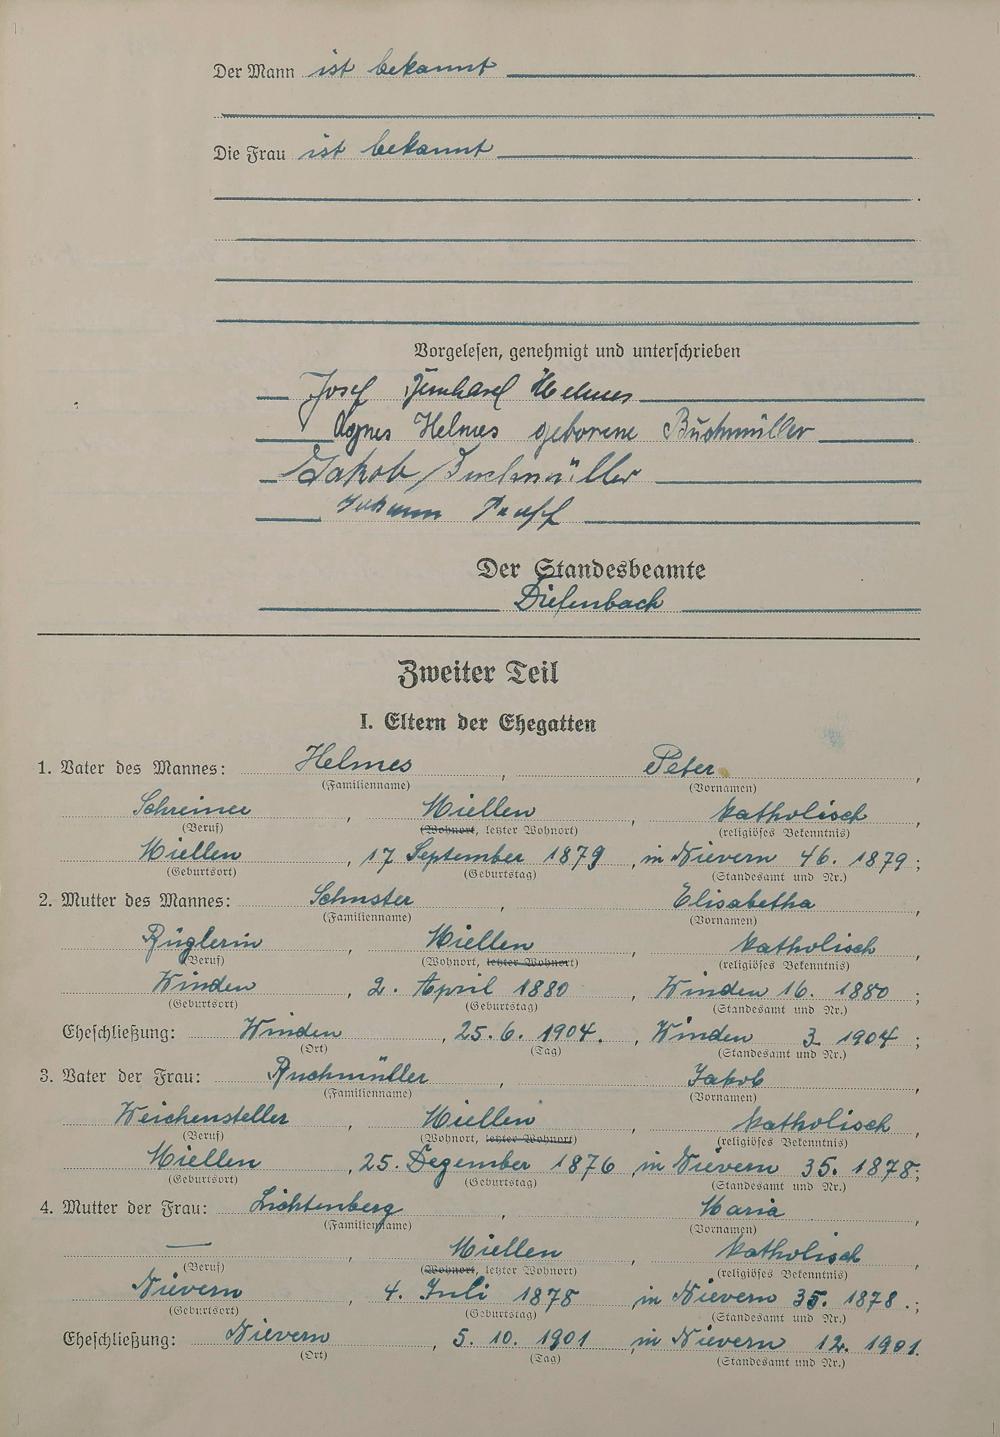 Der Mann ist bekannt
Die Frau ist bekannt
Vorgelesen, genehmigt und unterschrieben
Josef Helmes
Agnes Helmes geborene Buchmüller
Jakob Buchmüller
Johann
Der Standesbeamte
Diefenbach
Zweiter Teil
I. Eltern der Ehegatten
1. Vater des Mannes: Helmes, Peter,
(Familienname) (Vornamen)
Schreiner, Miellen, katholisch
(Beruf) (Wohnort, letzter Wohnort) (religiöses Bekenntnis)
Miellen, 17 September 1879, in Nievern 46. 1879;
(Geburtsort) (Geburtstag) (Standesamt und Nr.)
2. Mutter des Mannes: Schuster, Elisabetha,
(Familienname) (Vornamen)
Büglerin, Miellen, katholisch,
(Beruf) (Wohnort, letzter Wohnort) (religiöses Bekenntnis)
Winden, 2. April 1880, Winden 16. 1880;
(Geburtsort) (Geburtstag) (Standesamt und Nr.)
Eheschließung: Winden, 25. 6. 1904., Winden 3. 1904;
(Ort) (Tag) (Standesamt und Nr.)
3. Vater der Frau: Buchmüller, Jakob,
(Familienname) (Vornamen)
Weichensteller, Miellen, katholisch,
(Beruf) (Wohnort, letzter Wohnort) (religiöses Bekenntnis)
Miellen, 25. Dezember 1876, in Nievern 35. 1878;
(Geburtsort) (Geburtstag) (Standesamt und Nr.)
4. Mutter der Frau: Lichtenberg, Maria,
(Familienname) (Vornamen)
—, Miellen, katholisch,
(Beruf) (Wohnort, letzter Wohnort) (religiöses Bekenntnis)
Nievern, 4. Juli 1878, in Nievern 35. 1878.;
(Geburtsort) (Geburtstag) (Standesamt und Nr.)
Eheschließung: Nievern, 5. 10. 1901, in Nievern 12. 1901.
(Ort) (Tag) (Standesamt und Nr.)